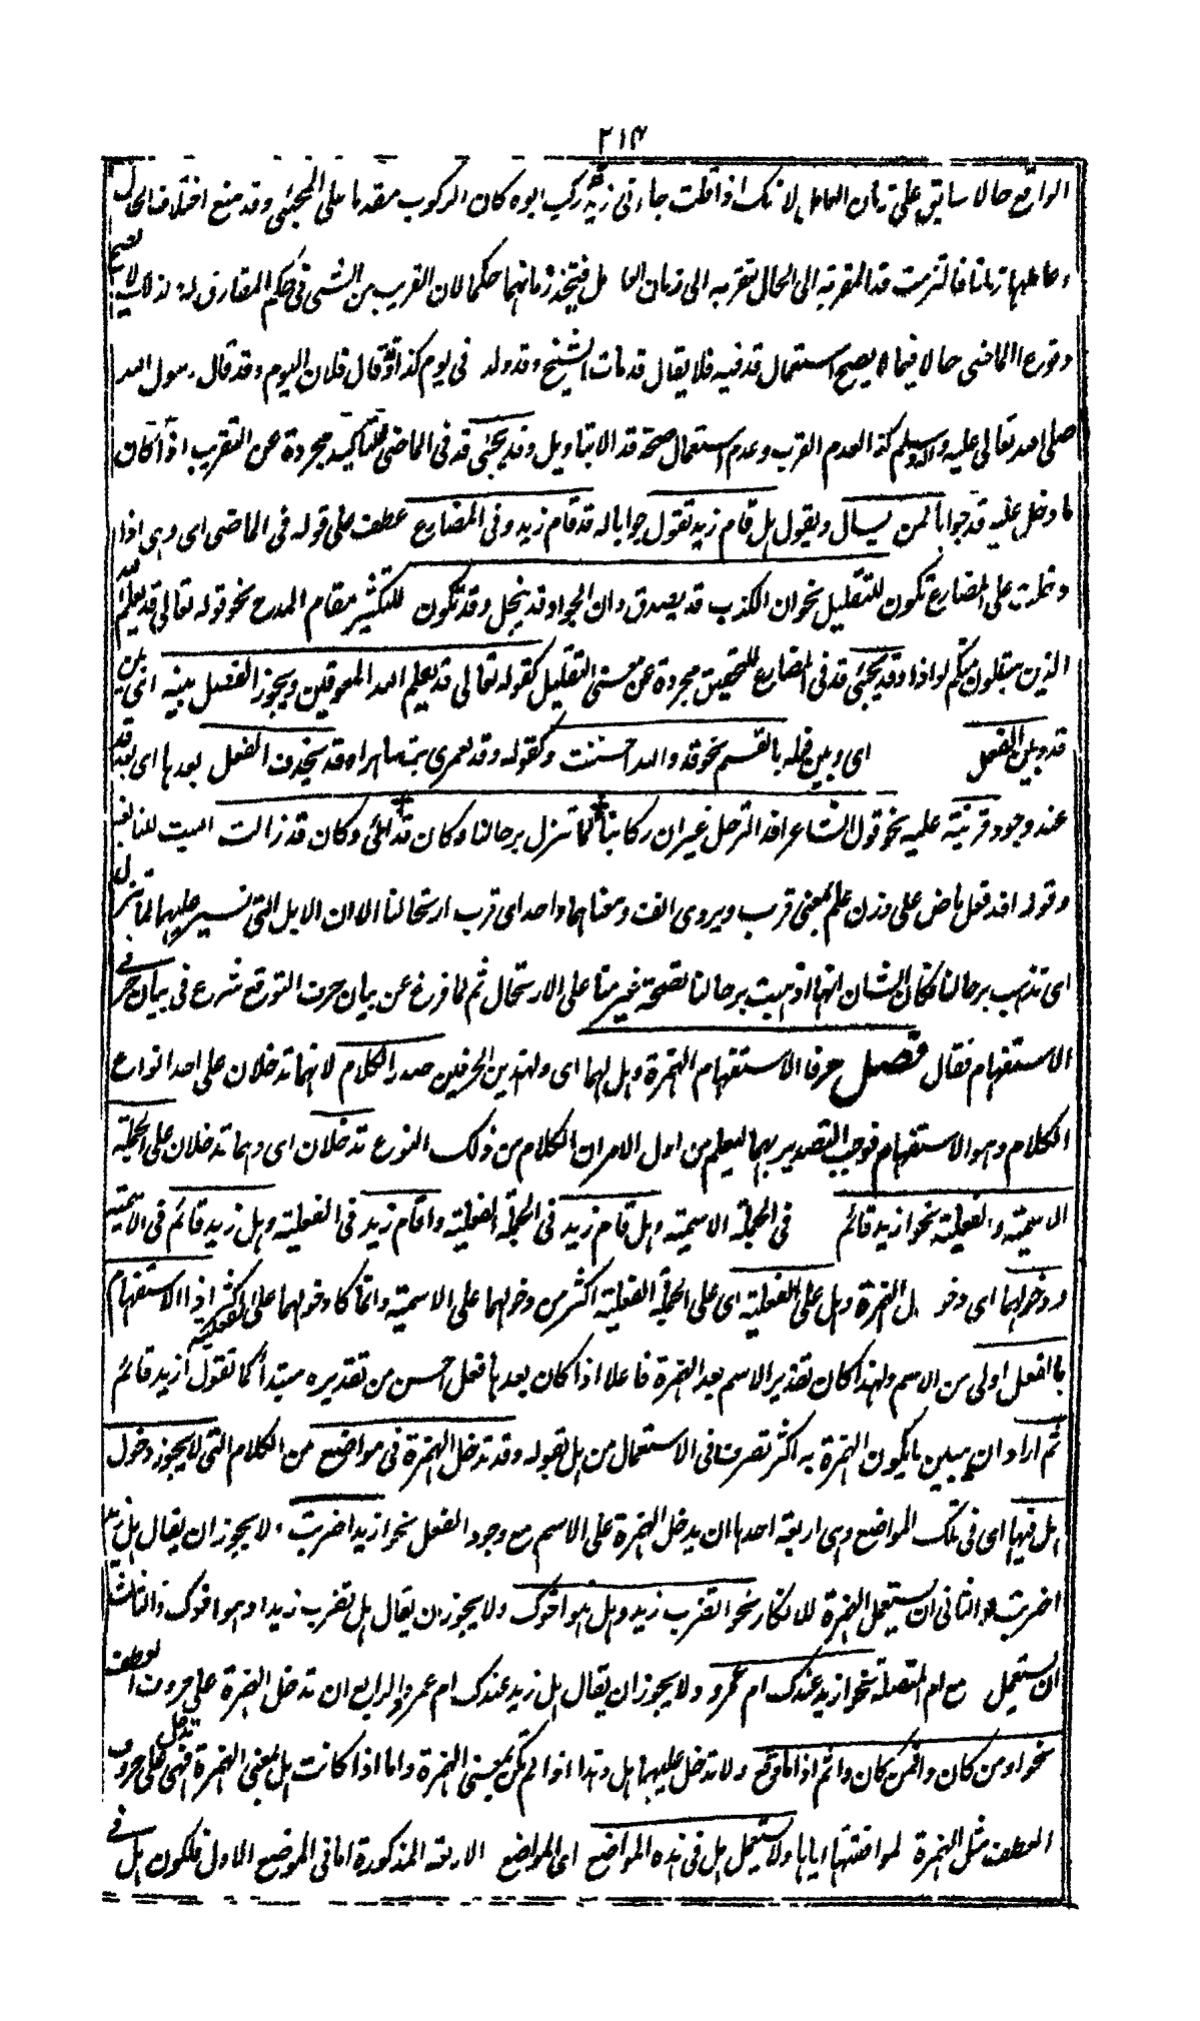 ٢١٤
الواقع حالا سابق على زمان العامل لانك اذا قلت جاءنى زيد ركب ابوه كان الركوب مقدما على المجئى وقد منع اختلاف الحال
وعاملها زمانا فالتزمت قد المقربة الى الحال لتقربه الى زمان العامل فيتحد زمانهما حكما لان القريب من الشئ فى حكم المقارن له لذلك لا يصح
وقوع الماضى حالا فيما لا يصح استعمال قد فيه فلا يقال قد مات الشيخ وقد ولد فى يوم كذا او قال فلان اليوم وقد قال رسول الله
صلى الله تعالى عليه وآله وسلم كذا لعدم القرب وعدم استعمال صحة قد الا بتاويل وقد يجئى قد فى الماضى للتاكيد مجردة عن التقريب اذا كان
ما دخل عليه قد جوابا لمن يسال ويقول هل قام زيد تقول جوابا له قد قام زيد وفى المضارع عطف على قوله فى الماضى اى وهى اذا
دخلت على المضارع تكون للتقليل نحو ان الكذوب قد يصدق وان الجواد قد يبخل وقد تكون للتكثير مقام المدح نحو قوله تعالى قد يعلم الله
الذين يتسللون منكم لواذا وقد يجئى قد فى المضارع للتحقيق مجردة عن معنى التقليل كقوله تعالى قد يعلم الله المعوقين ويجوز الفصل بينه اى بين
قد وبين الفعل اى وبين فعله بالقسم نحو قد والله احسنت وكقوله وقد لعمرى بت ساهرا وقد يحذف الفعل بعدها اى بعد قد
عند وجود قرينة عليه نحو قول الشاعر افد الترحل غير ان ركابنا لما تزل برحالنا وكان قد اى وكان قد زالت البيت للنابغة
وقوله افد فعل ماض على وزن علم بمعنى قرب ويروى ازف ومعناهما واحد اى قرب ارتحالنا الا ان الابل التى نسير عليها لما تزل
اى تذهب برحالنا لكان الشان انها ذهبت برحالنا لصحة عزمنا على الارتحال ثم لما فرغ عن بيان حرف التوقع شرع فى بيان حرفى
الاستفهام فقال فصل حرفا الاستفهام الهمزة وهل لهما اى ولهذين الحرفين صدر الكلام لانهما تدخلان على احد انواع
الكلام وهو الاستفهام فوجب التصدير بهما ليعلم من اول الامر ان الكلام من ذلك النوع تدخلان اى وهما تدخلان على الجملة
الاسمية والفعلية نحو ازيد قائم فى الجملة الاسمية وهل قام زيد فى الجملة الفعلية واقام زيد فى الفعلية وهل زيد قائم فى الاسمية
ودخولهما اى دخول الهمزة وهل على الفعلية اى على الجملة الفعلية اكثر من دخولهما على الاسمية وانما كان دخولهما على الفعلية اكثر اذ الاستفهام
بالفعل اولى من الاسم ولهذا كان تقدير الاسم بعد الهمزة فاعلا اذا كان بعدها فعل احسن من تقديره مبتدأ كما تقول ازيد قائم
ثم اراد ان يبين ما يكون الهمزة به اكثر تصرفا فى الاستعمال من هل بقوله وقد تدخل الهمزة فى مواضع من الكلام التى لا يجوز دخول
هل فيها اى فى تلك المواضع وهى اربعة احدها ان يدخل الهمزة على الاسم مع وجود الفعل نحو ازيدا ضربت ولا يجوز ان يقال هل زيدا
ضربت والثانى ان يستعمل الهمزة للانكار نحو اتضرب زيدا وهو اخوك ولا يجوز ان يقال هل تضرب زيدا وهو اخوك والثالث
ان يستعمل مع ام المتصلة نحو ازيد عندك ام عمرو ولا يجوز ان يقال هل زيد عندك ام عمرو والرابع ان تدخل الهمزة على حروف العطف
نحو اومن كان وافمن كان واثم اذا ما وقع ولا تدخل عليها هل وهذا اذا لم تكن بمعنى الهمزة واما اذا كانت هل بمعنى الهمزة فهى تدخل على حروف
العطف مثل الهمزة لموافقتها اياها ولا يستعمل هل فى هذه المواضع اى المواضع الاربعة المذكورة اما فى الموضع الاول فلكون هل فى